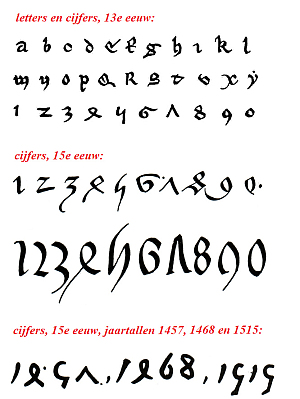 letters en cijfers, 13e eeuw:
a b c d e f g h i k l
m n o p q R s t v x ẏ
1 2 3 4 5 6 7 8 9 0
cijfers, 15e eeuw:
1 2 3 4 5 6 7 8 9 0.
1234567890
cijfers, 15e eeuw, jaartallen 1457, 1468 en 1515:
1457., 1468, 1515